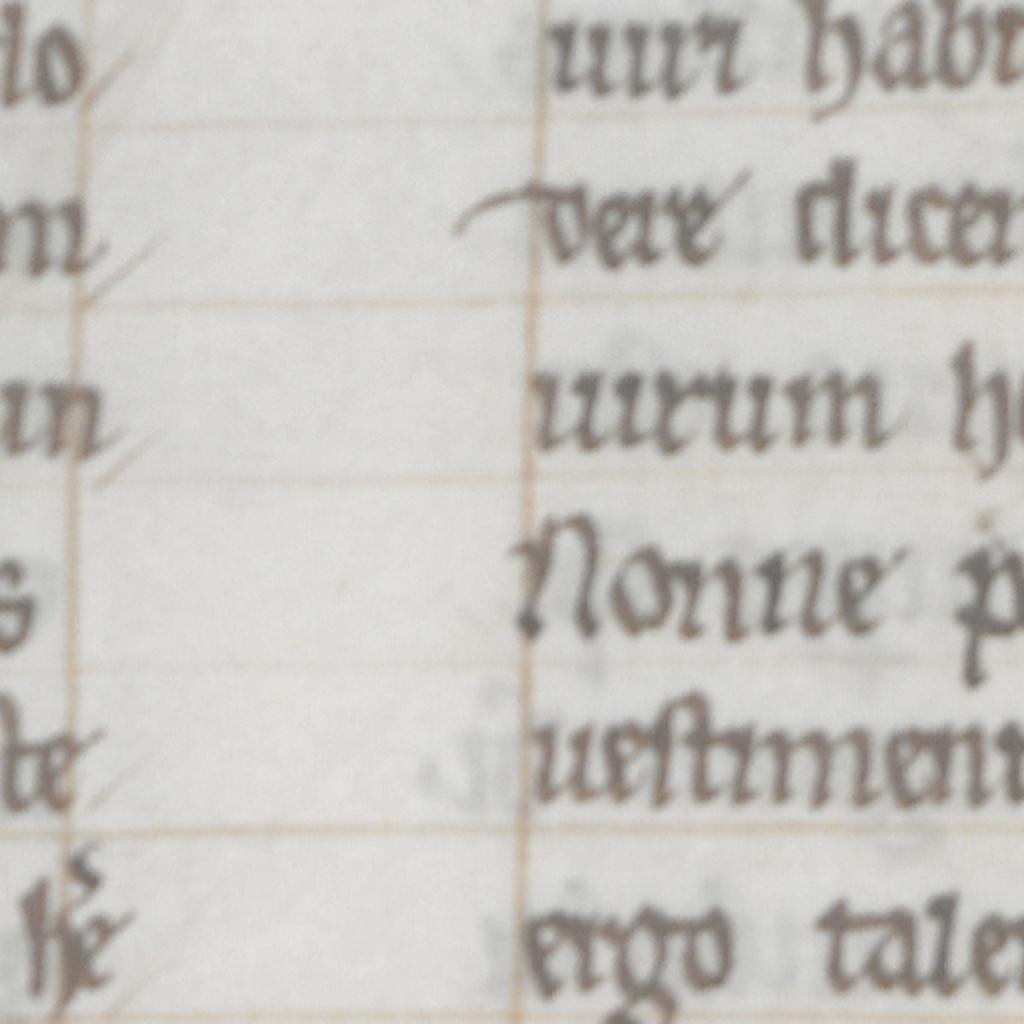 lo
m
un
s
ste
uur habi
vere dicer
uirum h
Nonne p
uestiment
ergo tale